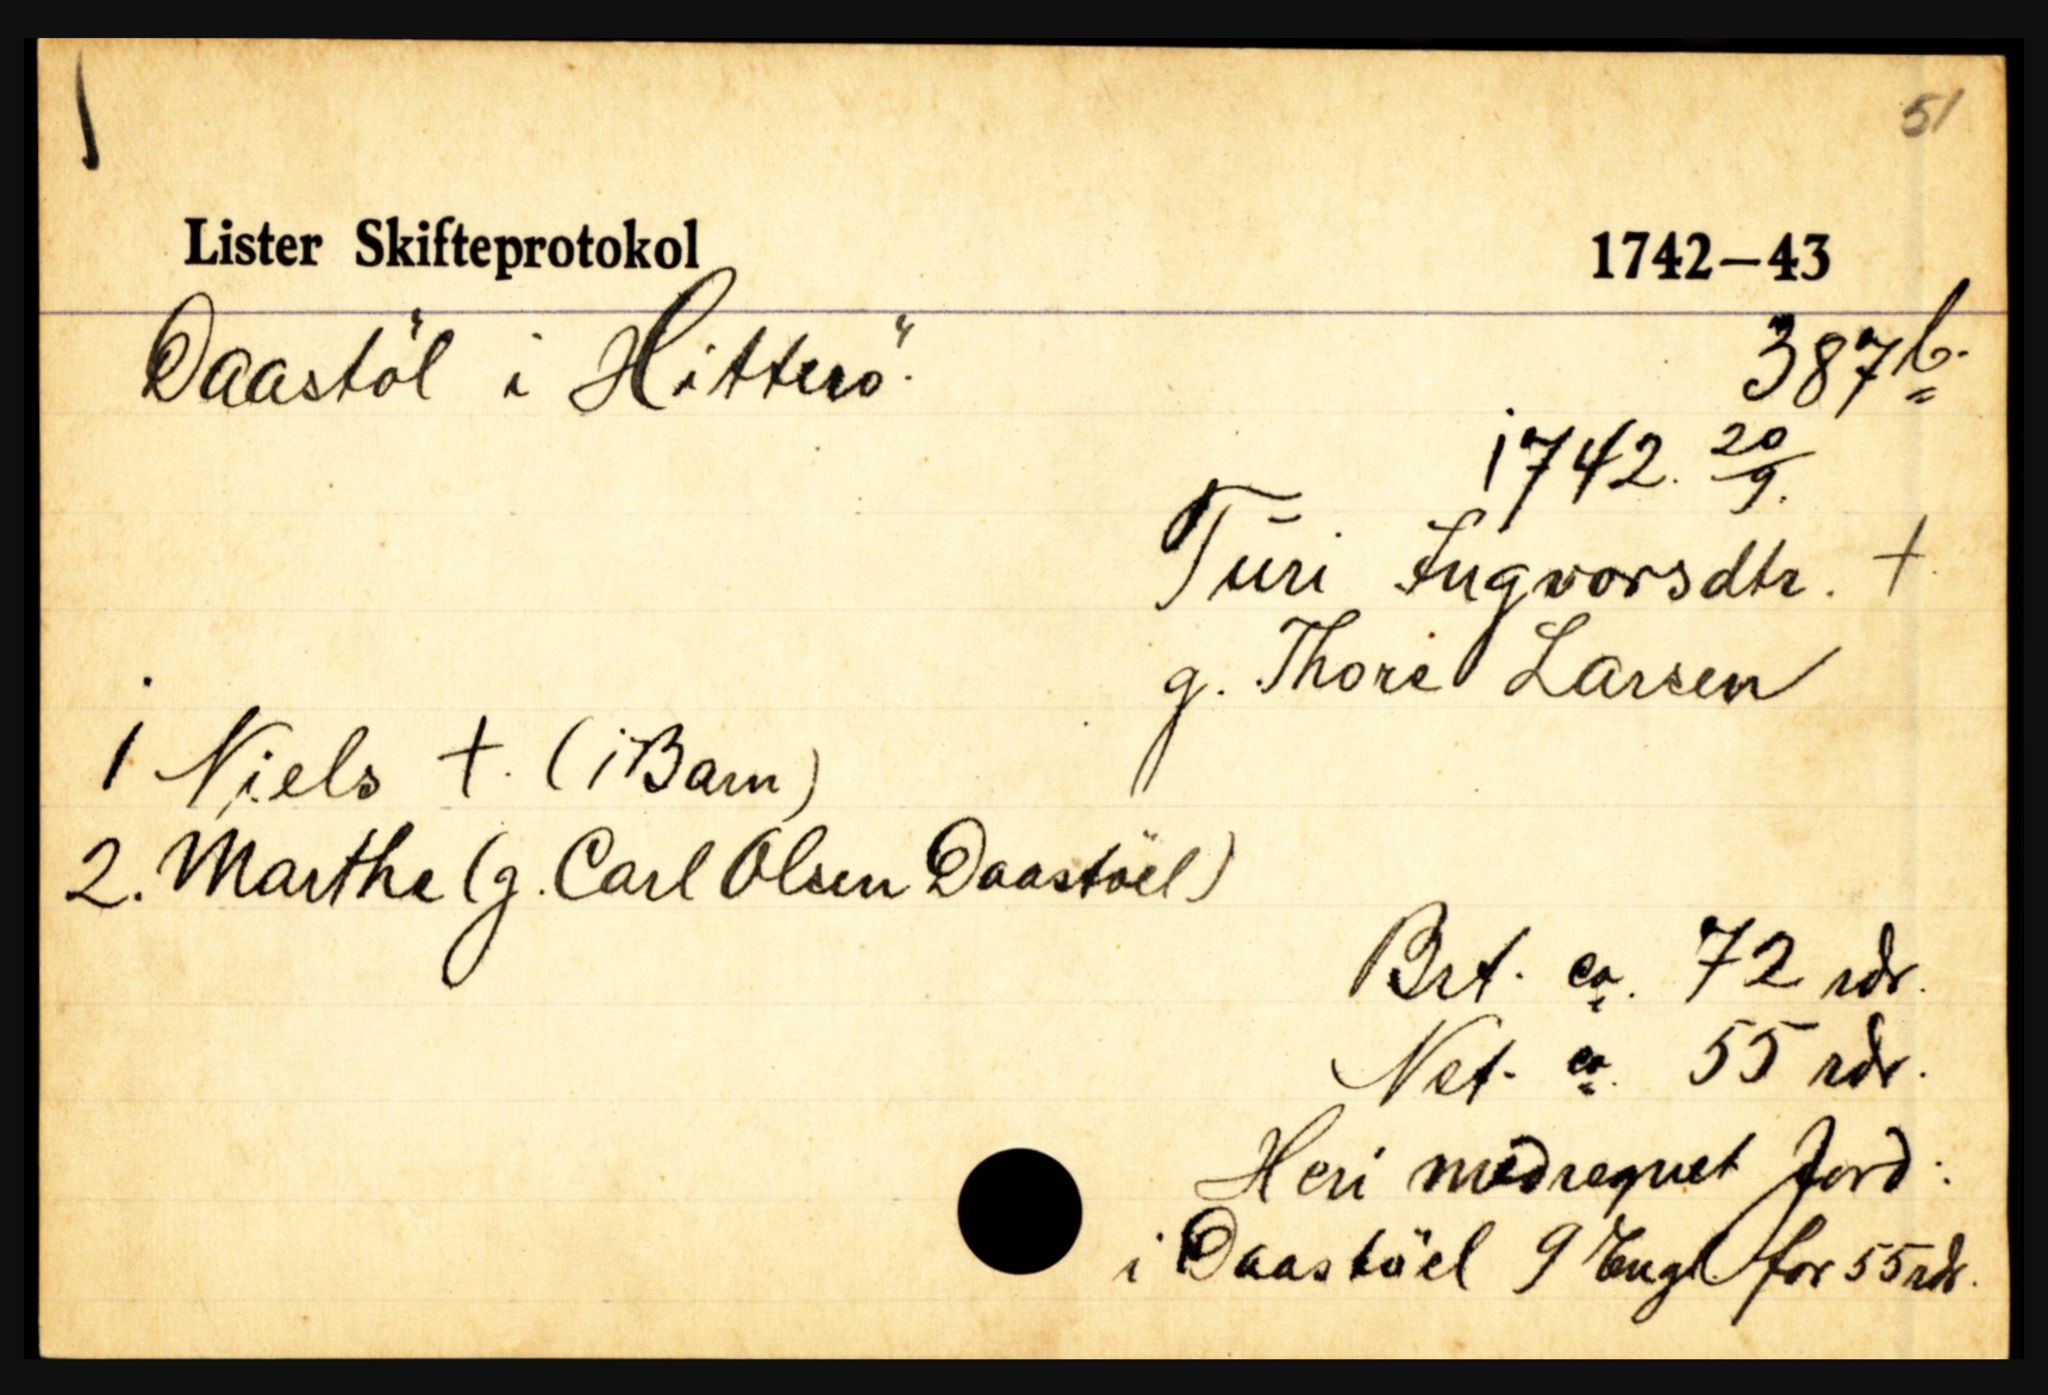 51
Lister Skifteprotokol 1742–43
Daastöl i Hitterö. 387 b.
1742. 20/9.
Turi Ingvorsdtr. +
g. Thore Larsen
1 Niels +. (1 Barn)
2. Marthe (g. Carl Olsen Daastöel)
Brt. ca. 72 rdr.
Net. ca. 55 rdr.
Heri medregnet Jord:
i Daastöel 9 Engl. for 55 rdr.